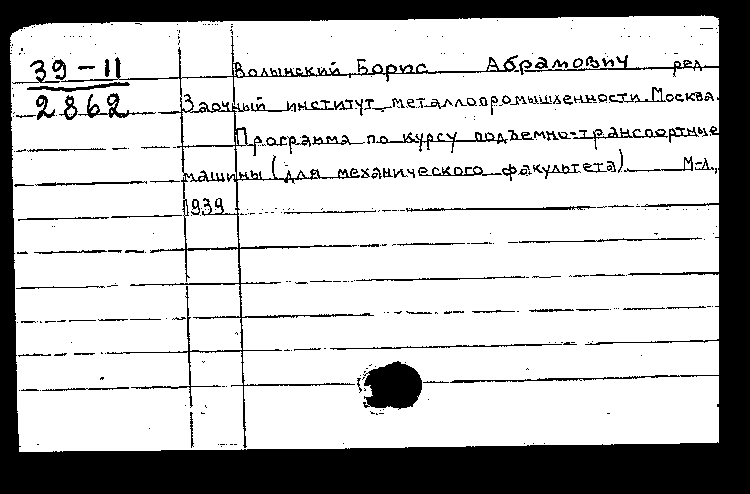 39-11
2862
Волынский, Борис Абрамович ред.
Заочный институт металлопромышленности. Москва.
Программа по курсу подъемно-транспортные
машины (для механического факультета). М-л.,
1939